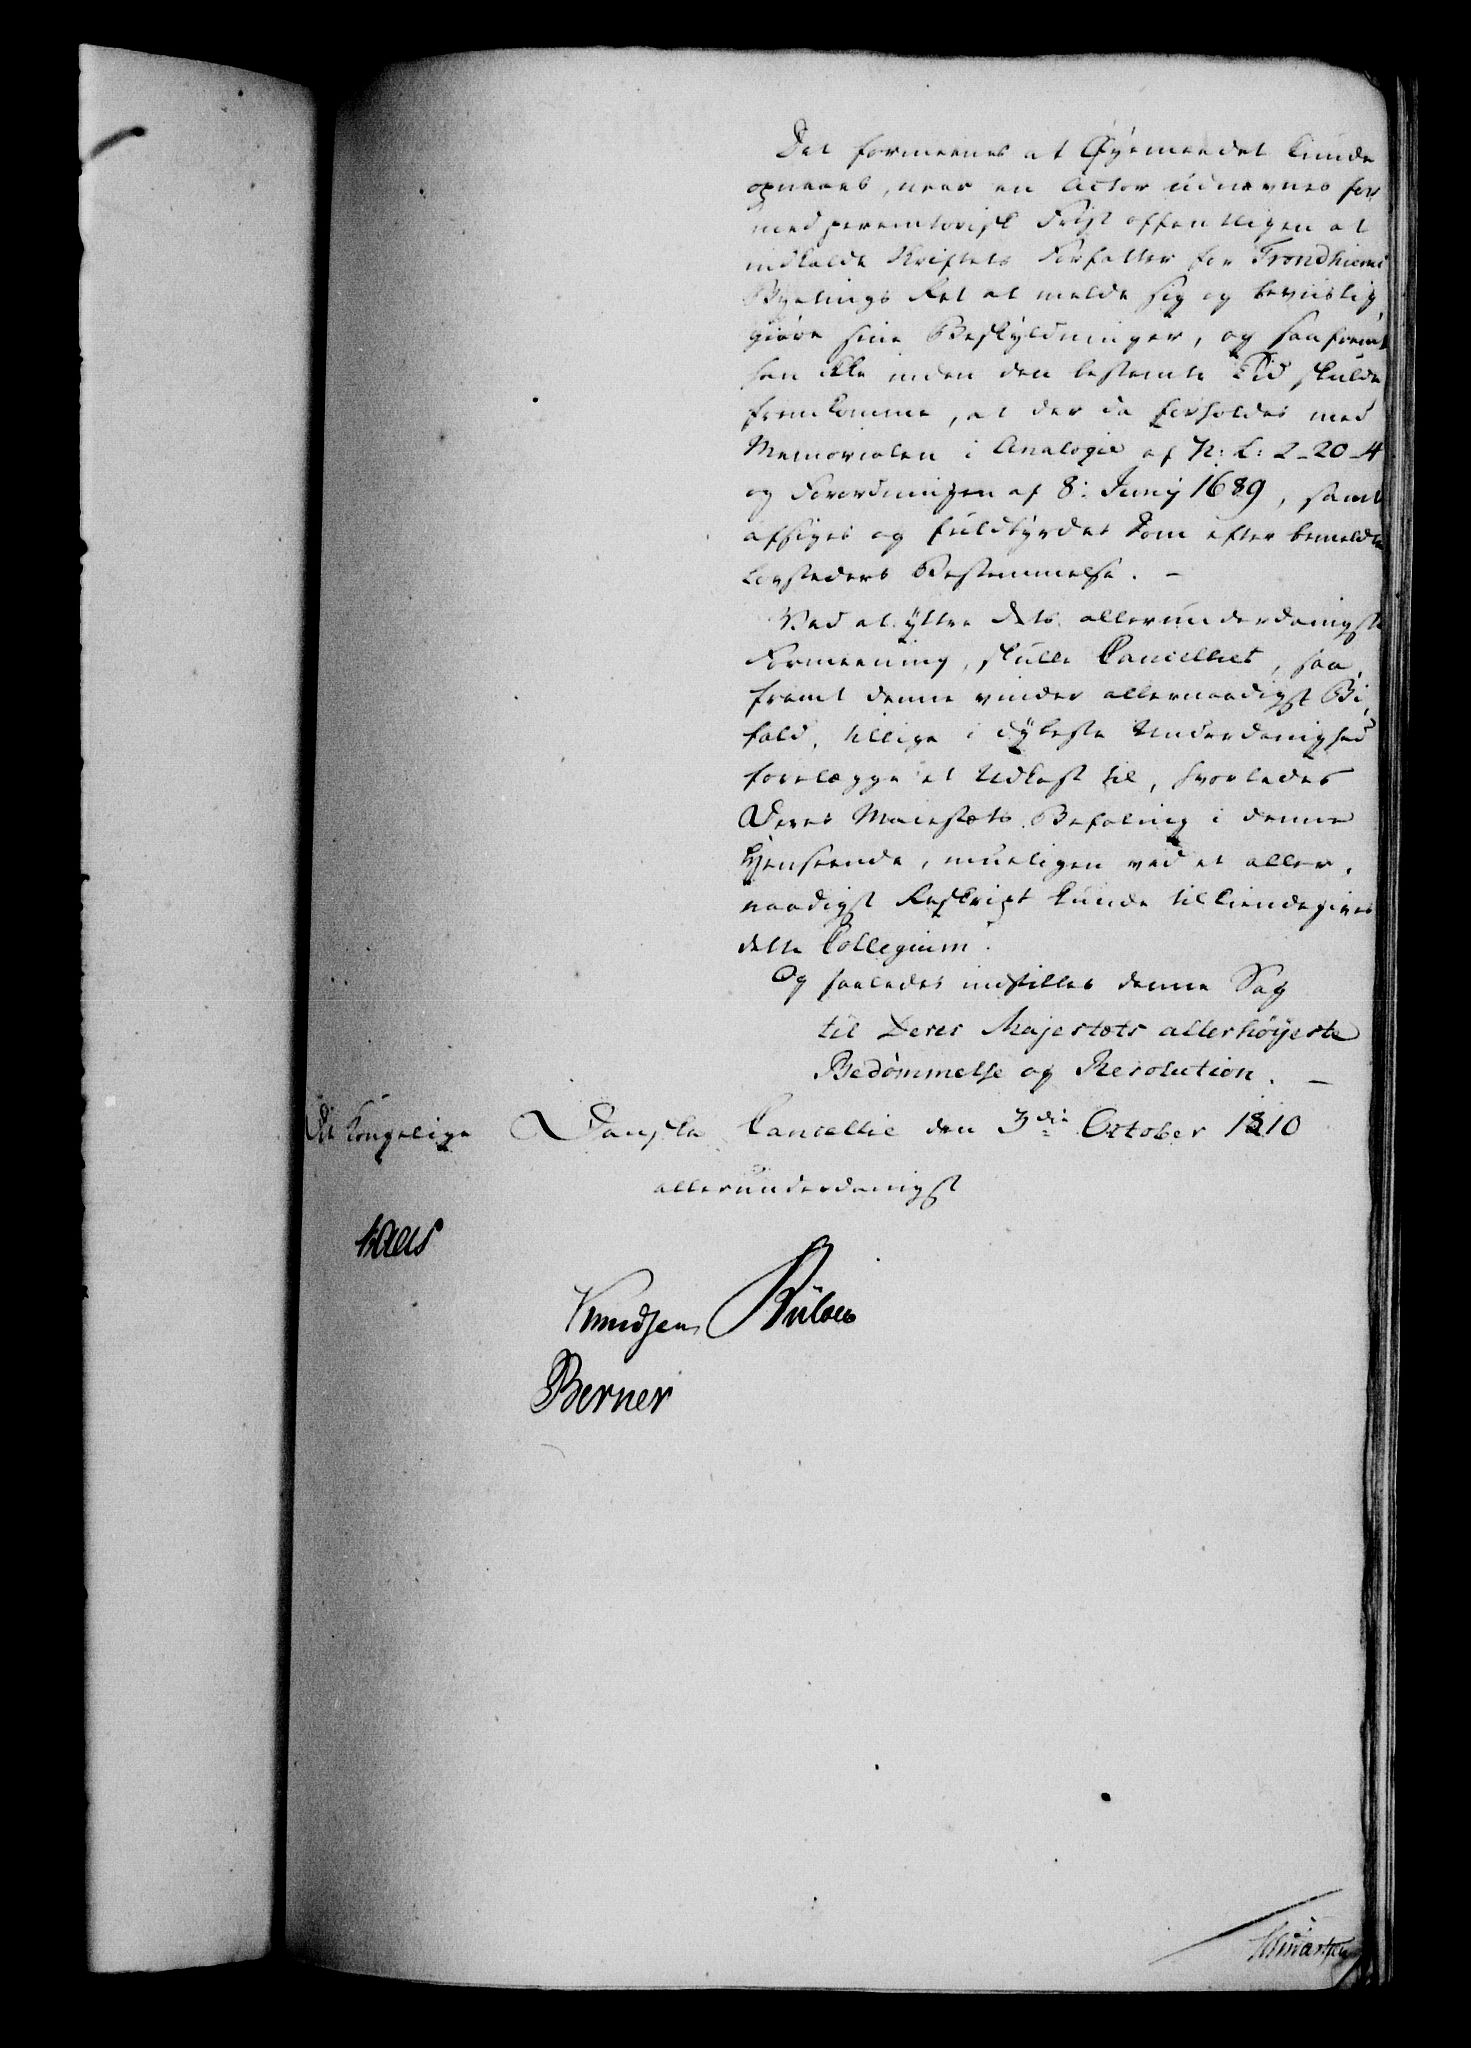 Det formeenes at Øyemeedet kunde
opnaaes, naar en Actor udnævnes for
med peremtorisk Frist offentligen at
indkalde Skriftets Forfatter for Trondhiems
Byetings Ret at melde sig og beviislig
giøre sine Beskyldninger, og saafremt
han ikke inden den bestemte Tid skulde
fremkomme, at der da forholdes med
Memorialen i Analogie af N: L: 2-20-4
og Forordningen af 8: Junij 1689, samt
afsiges og fuldbyrdes Dom efter bemeldte
Lovsteders Bestemmelse. -
Ved at yttre dets allerunderdanigste
Formeening, skulle Cancelliet, saa,
fremt denne vinder allernaadigst Bi,
fald, tillige i dybeste Underdanighed
forelægge et Udkast til, hvorledes
Deres Majestæts Befaling i denne
Henseende, mueligen ved et aller,
naadigst Reskript kunde tilkiendegives
dette Collegium.
Og saaledes indstilles denne Sag
til Deres Majestæts allerhøyeste
Bedømmelse og Resolution. -
Det kongelige Danske Cancellie den 3die October 1810
allerunderdanigst
Kaas
Knudsen Bülow
Berner